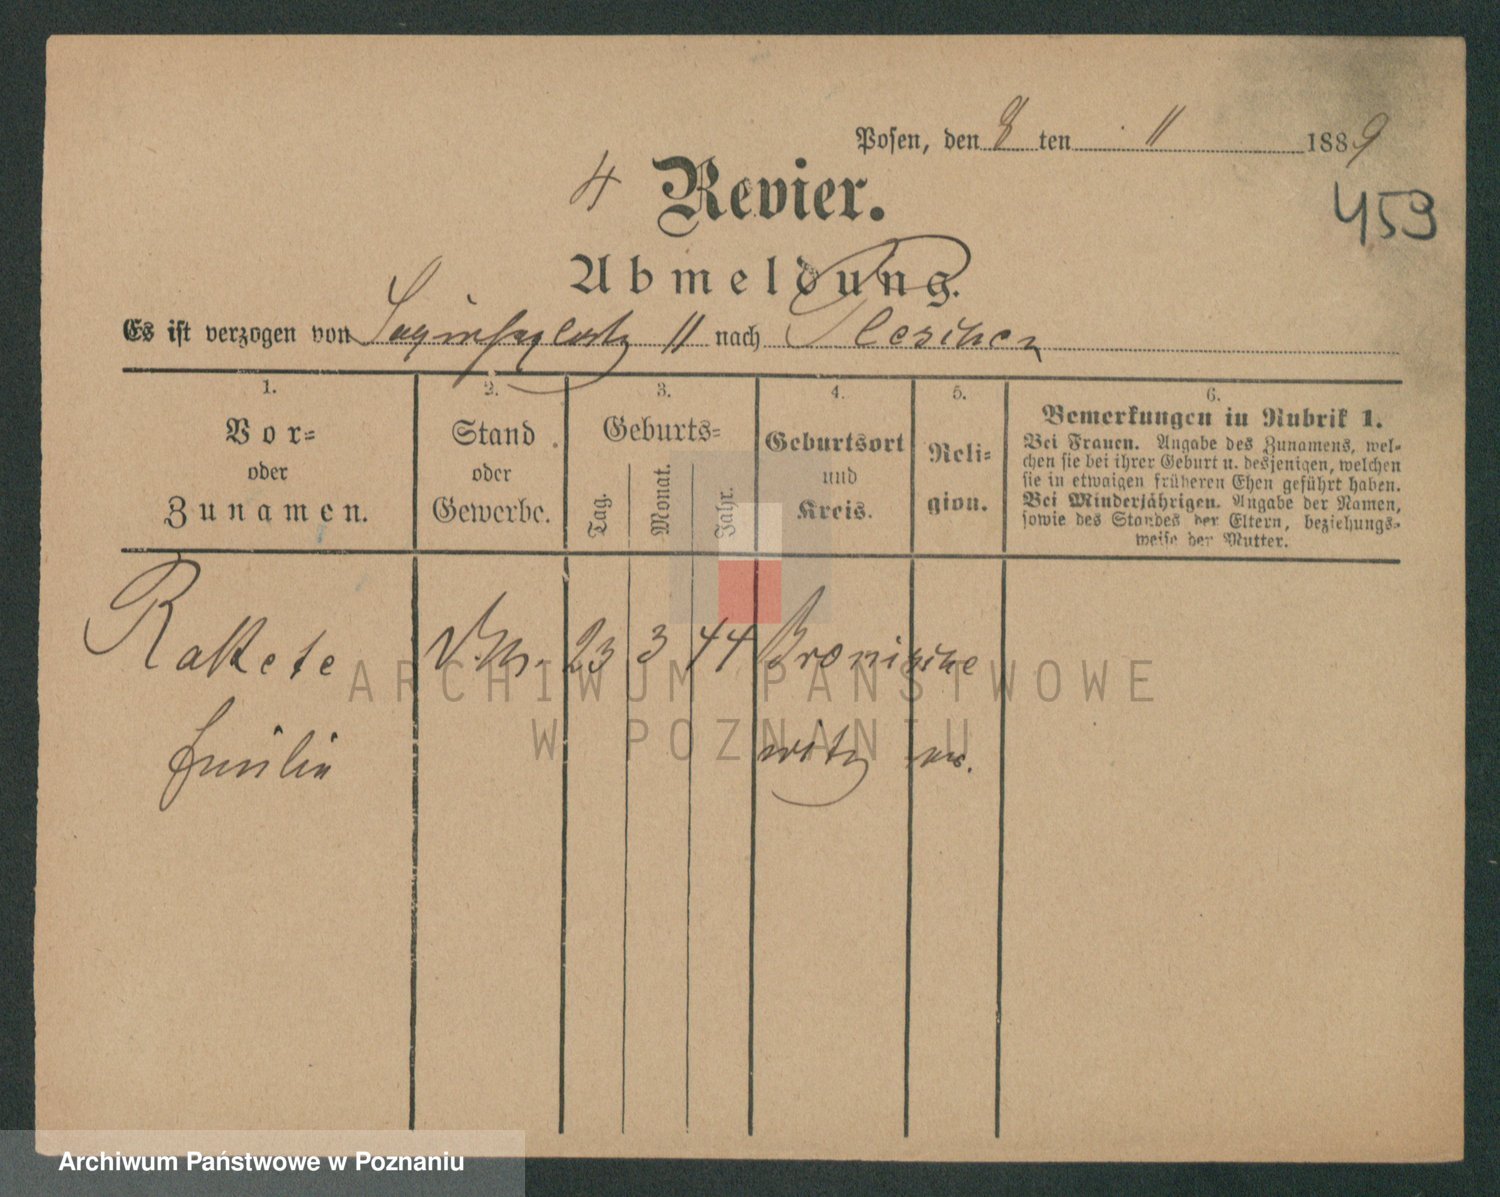 Posen, den 8 ten 11 1889
453
4 Revier.
Abmeldung.
Es ist verzogen von Sapiehaplatz 11 nach Pleschen
1.
Vor-
oder
Zunamen.
2.
Stand
oder
Gewerbe.
3.
Geburts-
Tag.
Monat.
Jahr.
4.
Geburtsort
und
Kreis.
5.
Reli-
gion.
6.
Bemerkungen in Rubrik 1.
Bei Frauen. Angabe des Zunamens, wel-
chen sie bei ihrer Geburt u. desjenigen, welchen
sie in etwaigen früheren Ehen geführt haben.
Bei Minderjährigen. Angabe der Namen,
sowie des Standes der Eltern, beziehungs-
weise der Mutter.
Rakete 23 3 44
Emilie witz
ARCHIWUM PAŃSTWOWE
W POZNANIU
Archiwum Państwowe w Poznaniu